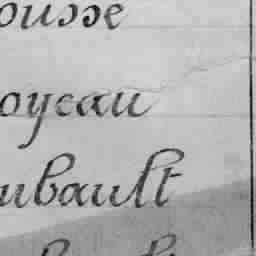 ousse
oyeau
ubault